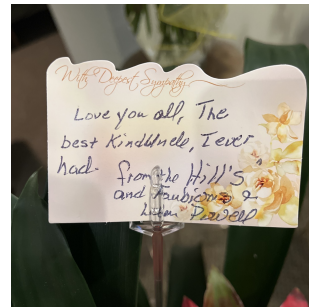 With Deepest Sympathy
Love you all, The
best Kind Uncle, I ever
had. from the Hill's
and &
Powell